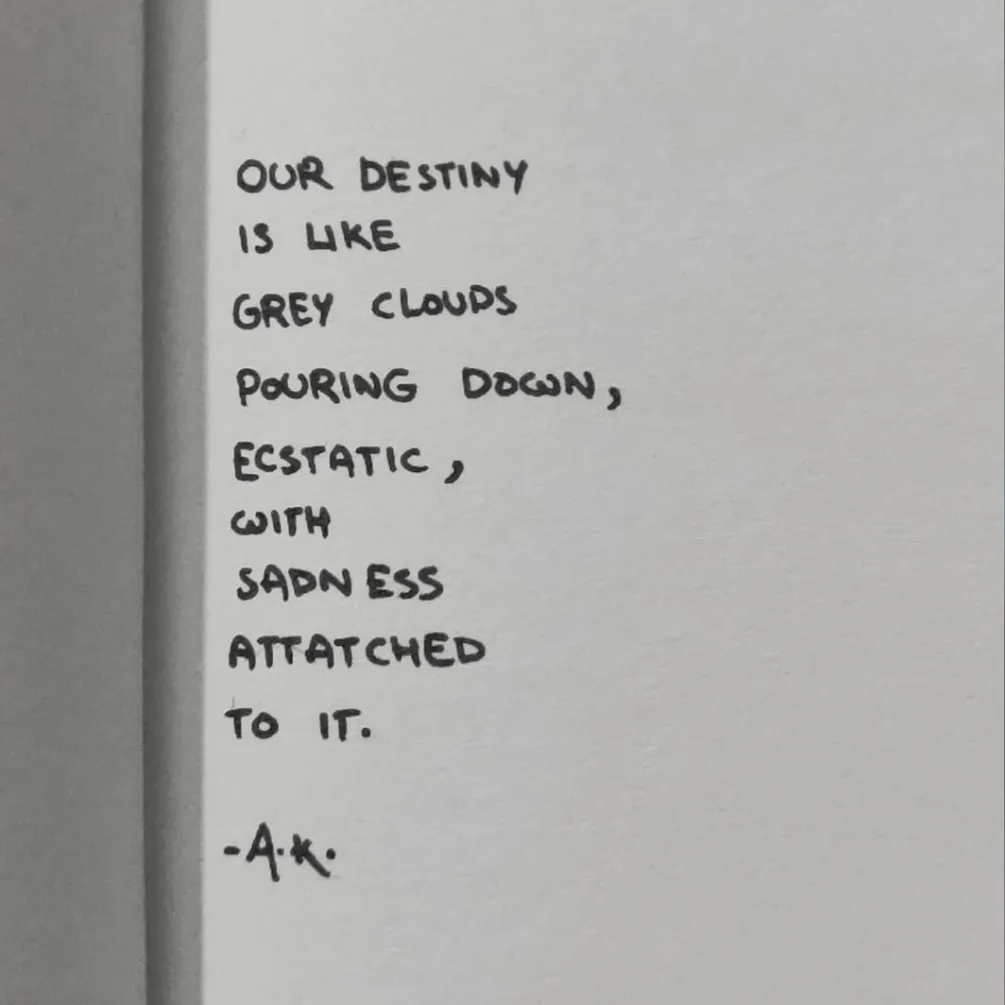 OUR DESTINY
IS LIKE
GREY CLOUDS
POURING DOWN,
ECSTATIC,
WITH
SADNESS
ATTATCHED
TO IT.
-A.K.